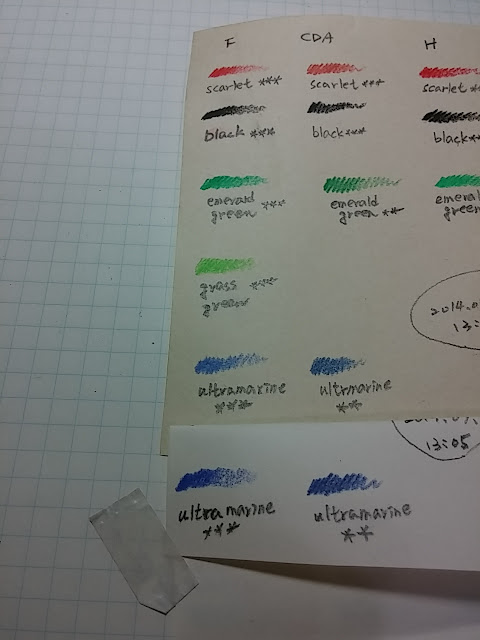 F CDA H
scarlet *** scarlet *** scarlet **
black *** black *** black **
emerald green *** emerald green **
grass green ***
2014.0
13:
ultramarine *** ultrmarine **
13:05
ultramarine *** ultramarine **